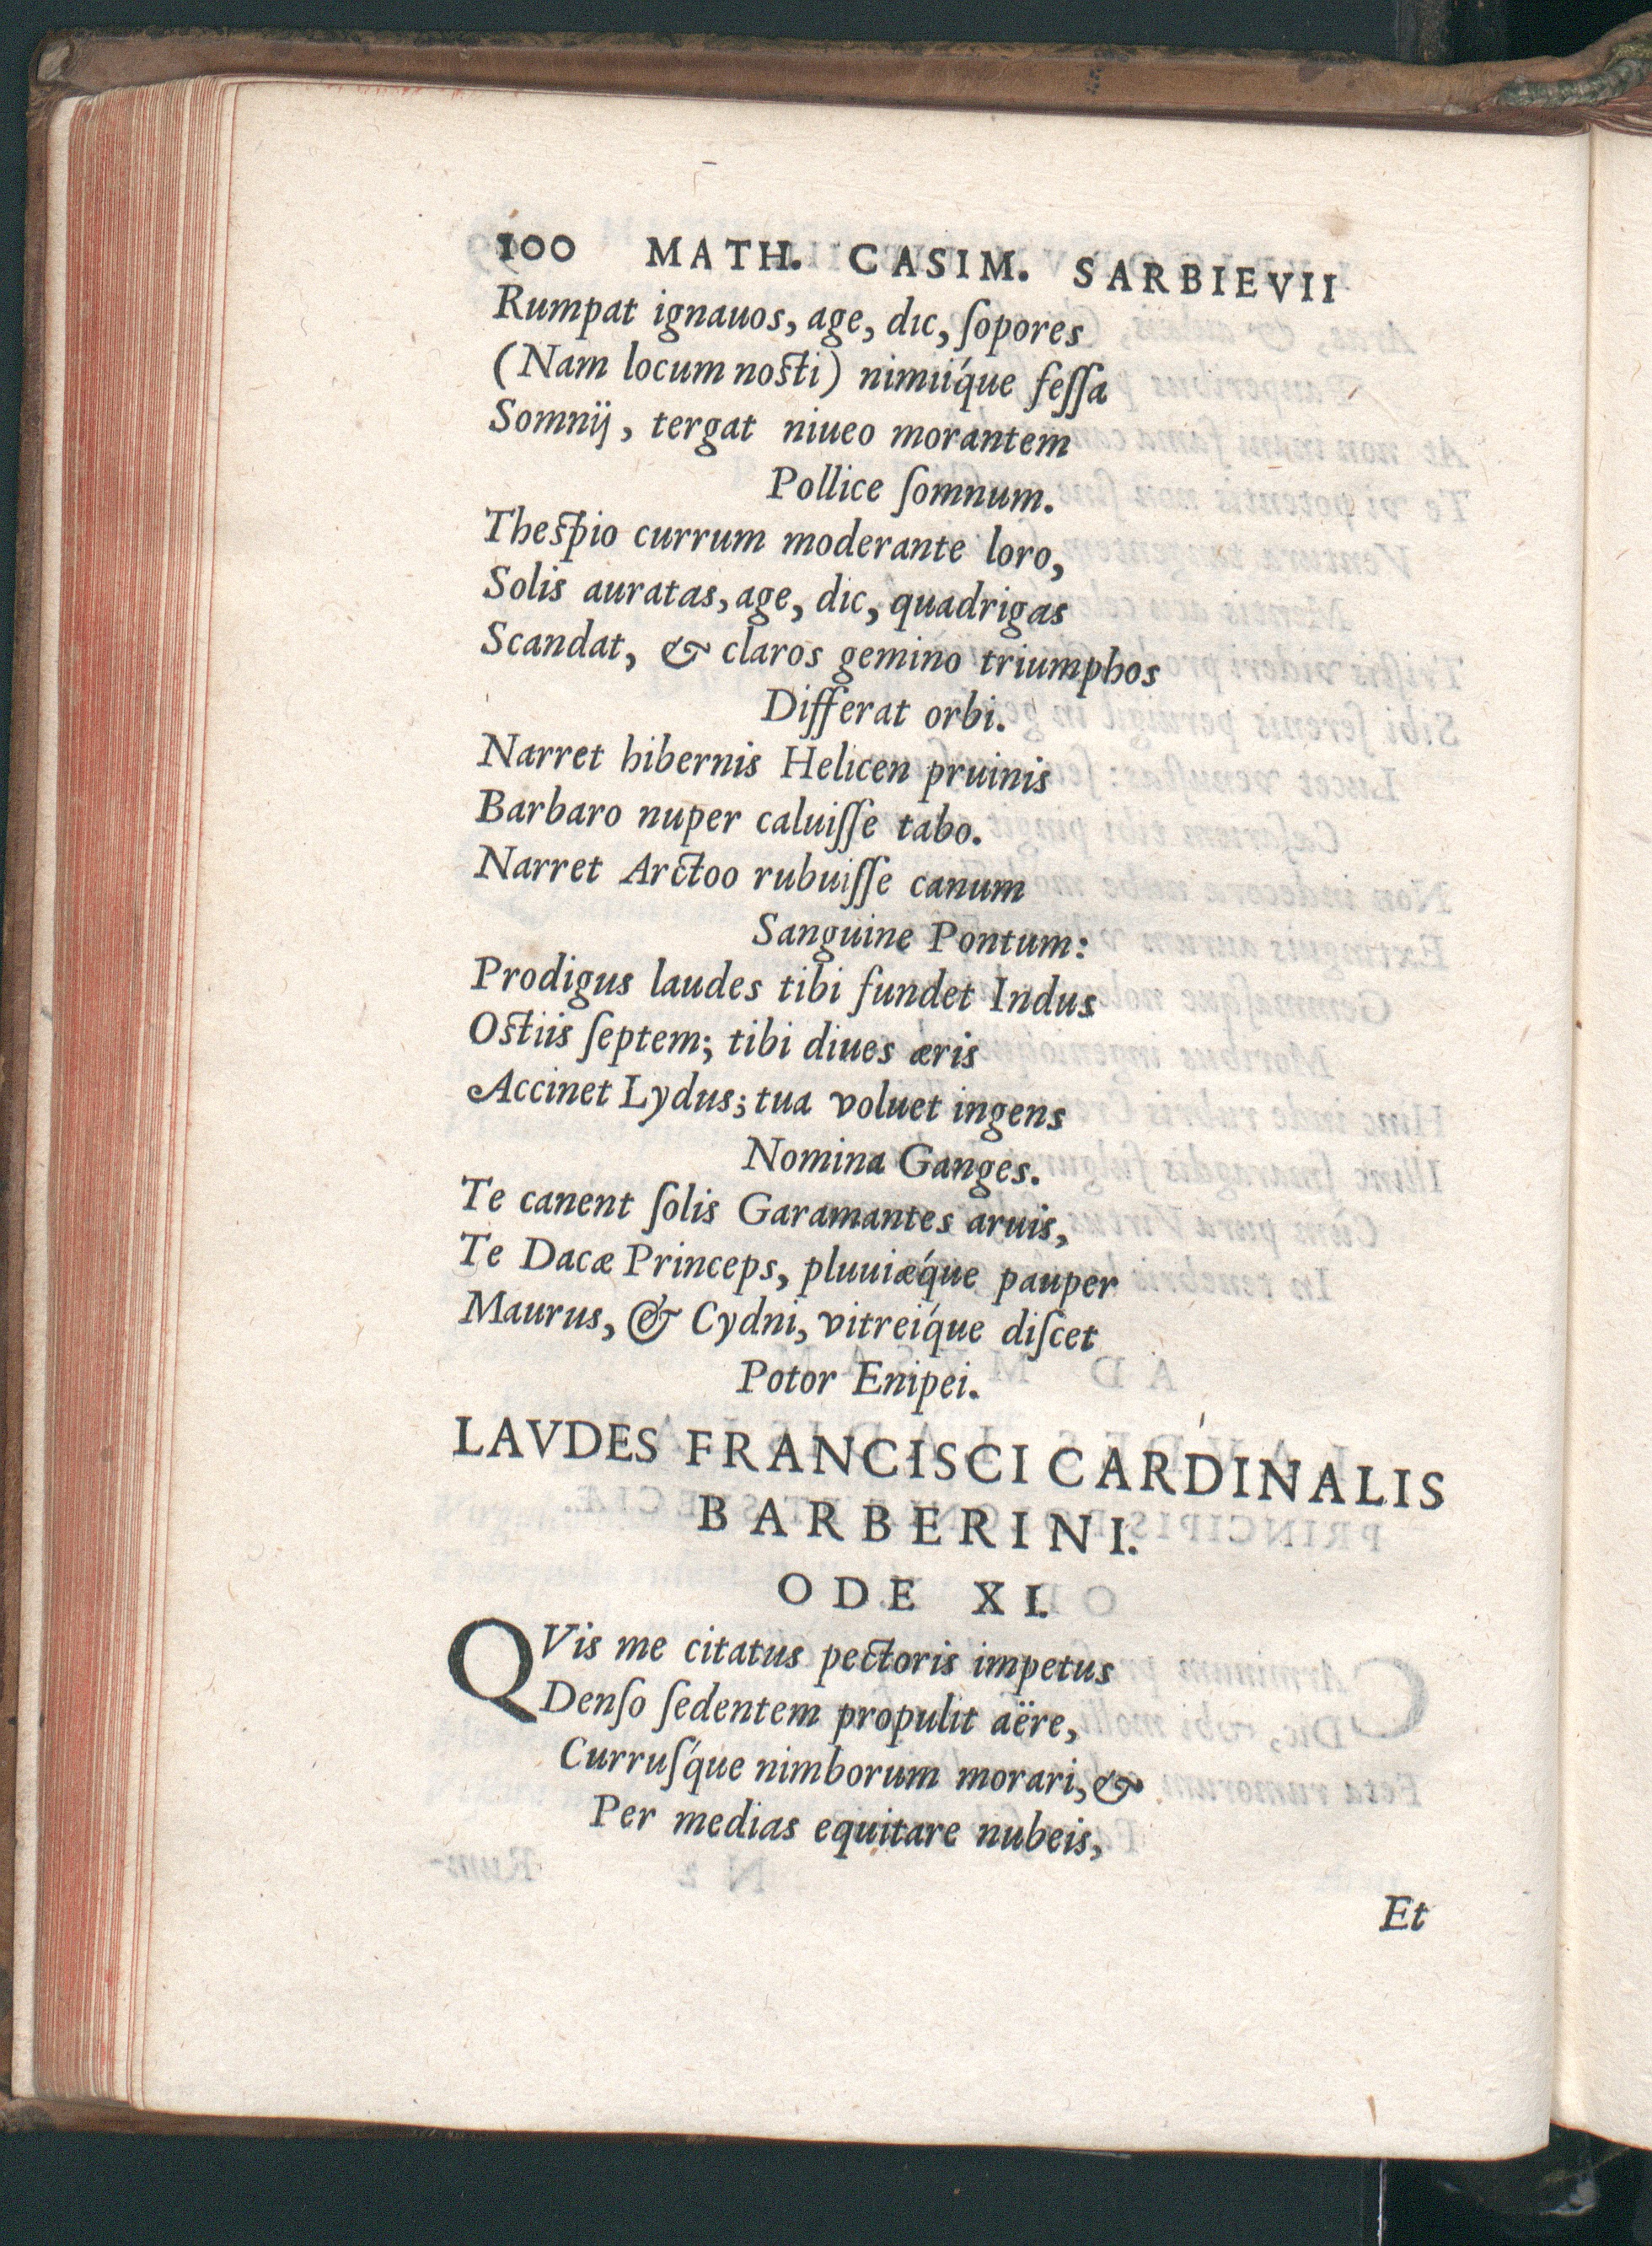 100 MATH. CASIM. SARBIEVII
Rumpat ignauos, age, dic, ſopores
(Nam locum noſti) nimiíque feſſa
Somnij, tergat niueo morantem
Pollice ſomnum.
Theſpio currum moderante loro,
Solis auratas, age, dic, quadrigas
Scandat, & claros gemino triumphos
Differat orbi.
Narret hibernis Helicen pruinis
Barbaro nuper caluiſſe tabo.
Narret Arctoo rubuiſſe canum
Sanguine Pontum:
Prodigus laudes tibi fundet Indus
Oſtiis ſeptem; tibi diues æris
Accinet Lydus; tua voluet ingens
Nomina Ganges.
Te canent ſolis Garamantes aruis,
Te Dacæ Princeps, pluuiǽque pauper
Maurus, & Cydni, vitreíque diſcet
Potor Enipei.
LAVDES FRANCISCI CARDINALIS
BARBERINI.
ODE XI.
QVis me citatus pectoris impetus
Denſo ſedentem propulit aëre,
Curruſ́que nimborum morari, &
Per medias equitare nubeis,
Et